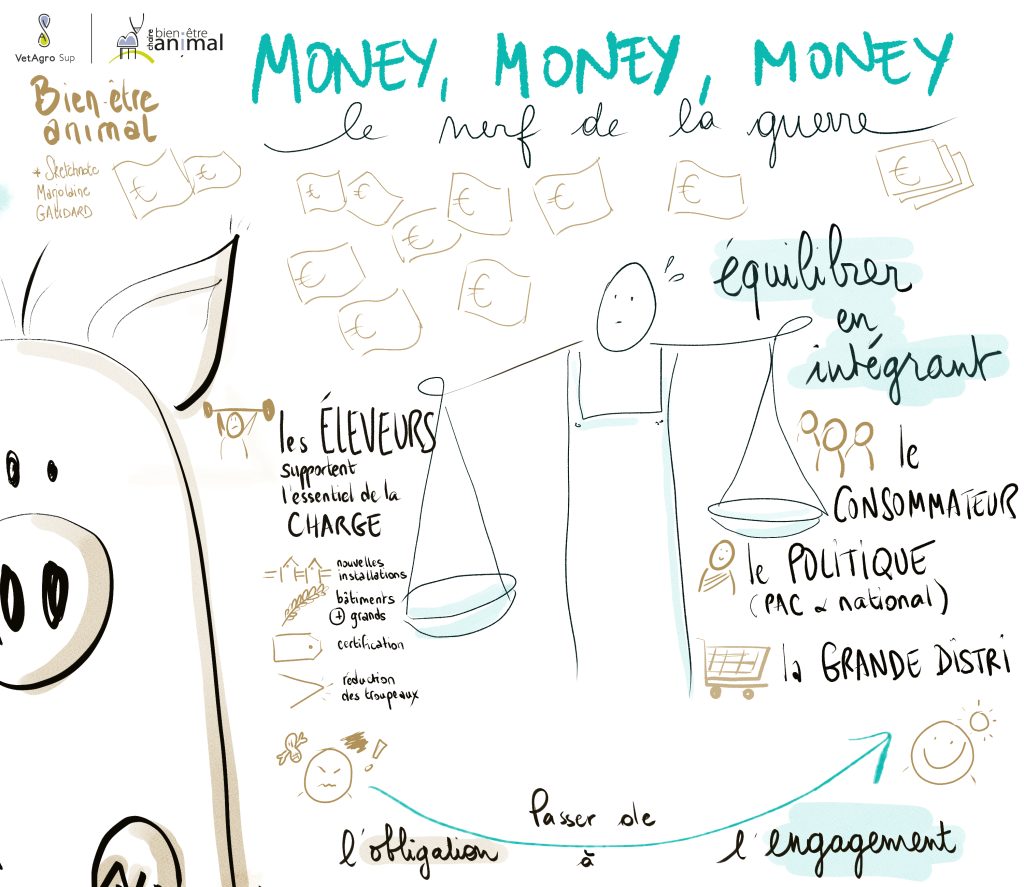 VetAgro Sup
chaire bien-être animal
MONEY, MONEY, MONEY
le nerf de la guerre
Bien-être
animal
* Sketchnote
Marjolaine
GAUDARD
€ € € € € € € € €
€ € €
équilibrer
en
intégrant
les ÉLEVEURS
supportent
l'essentiel de la
CHARGE
nouvelles
installations
bâtiments
+ grands
certification
réduction
des troupeaux
le
CONSOMMATEUR
le POLITIQUE
(PAC & national)
la GRANDE DISTRI
!
Passer de
l'obligation à l'engagement